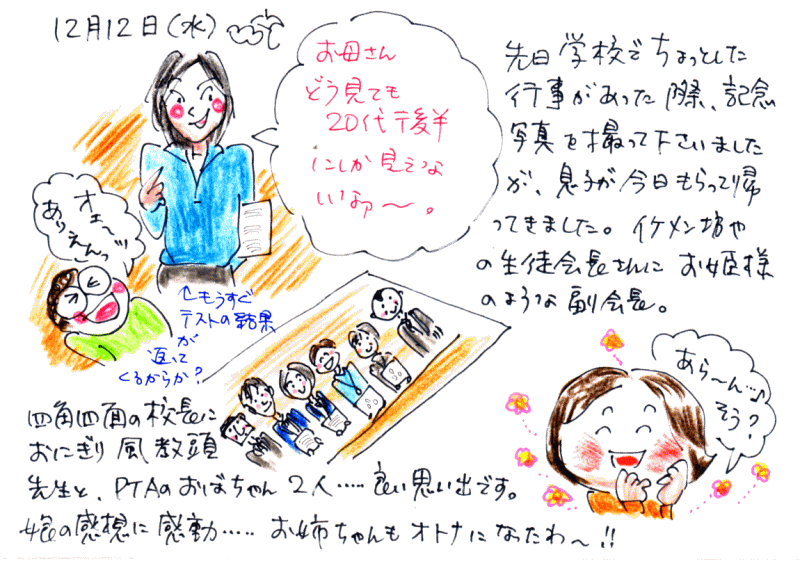 12月12日(水)
お母さん
どう見ても
20代後半
にしか見えな
いなァ〜。
オェ〜ッ
ありえんっ
↑もうすぐ
テストの結果
が
返って
くるからか?
先日学校でちょっとした
行事があった際、記念
写真を撮って下さいました
が、息子が今日もらって帰
ってきました。イケメン坊や
の生徒会長さんにお姫様
のような副会長。
あら〜ん…♪
そう?
四角四面の校長に
おにぎり風教頭
先生と、PTAのおばちゃん2人…..良い思い出です。
娘の感想に感動…..お姉ちゃんもオトナになったわ〜!!